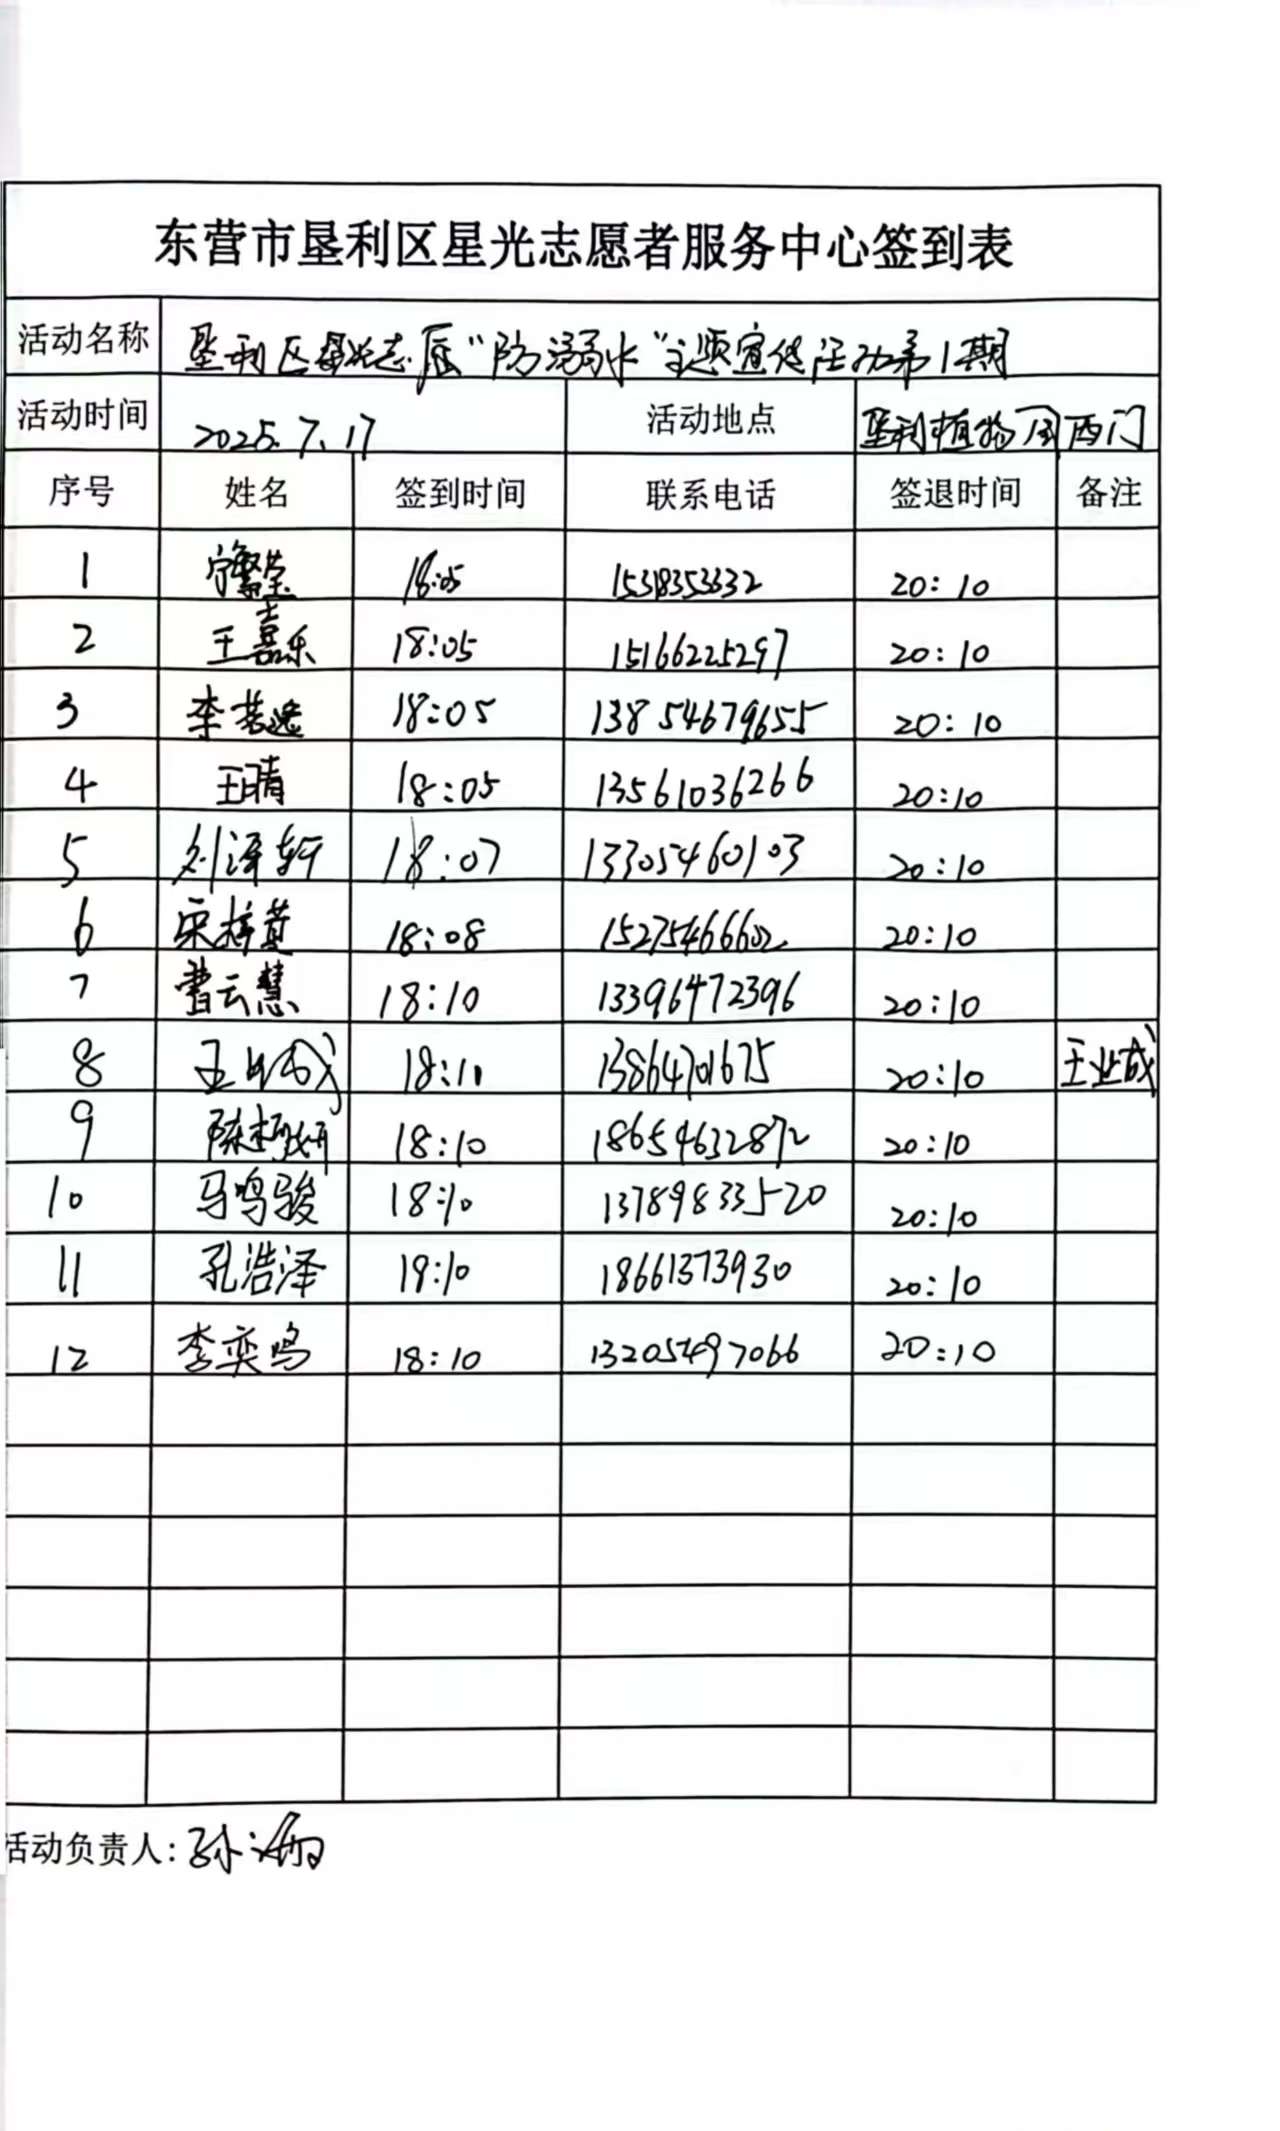 东营市垦利区星光志愿者服务中心签到表
活动名称 垦利区星光志愿“防溺水”主题宣传活动第1期
活动时间 2025.7.17 活动地点 垦利植物园西门
序号 姓名 签到时间 联系电话 签退时间 备注
1 宁馨莹 18:05 15318353632 20:10
2 王嘉乐 18:05 15166225297 20:10
3 李若逸 18:05 13854679655 20:10
4 王晴 18:05 13561036266 20:10
5 刘泽轩 18:07 13305460103 20:10
6 宋梓萱 18:08 15275466602 20:10
7 曹云慧 18:10 13396472396 20:10
8 王业成 18:10 13864701675 20:10 王业成
9 陈柯妍 18:10 18654632872 20:10
10 马鸣骏 18:10 13789833520 20:10
11 孔浩泽 18:10 18661373930 20:10
12 李奕鸣 18:10 13205497066 20:10
活动负责人:孙